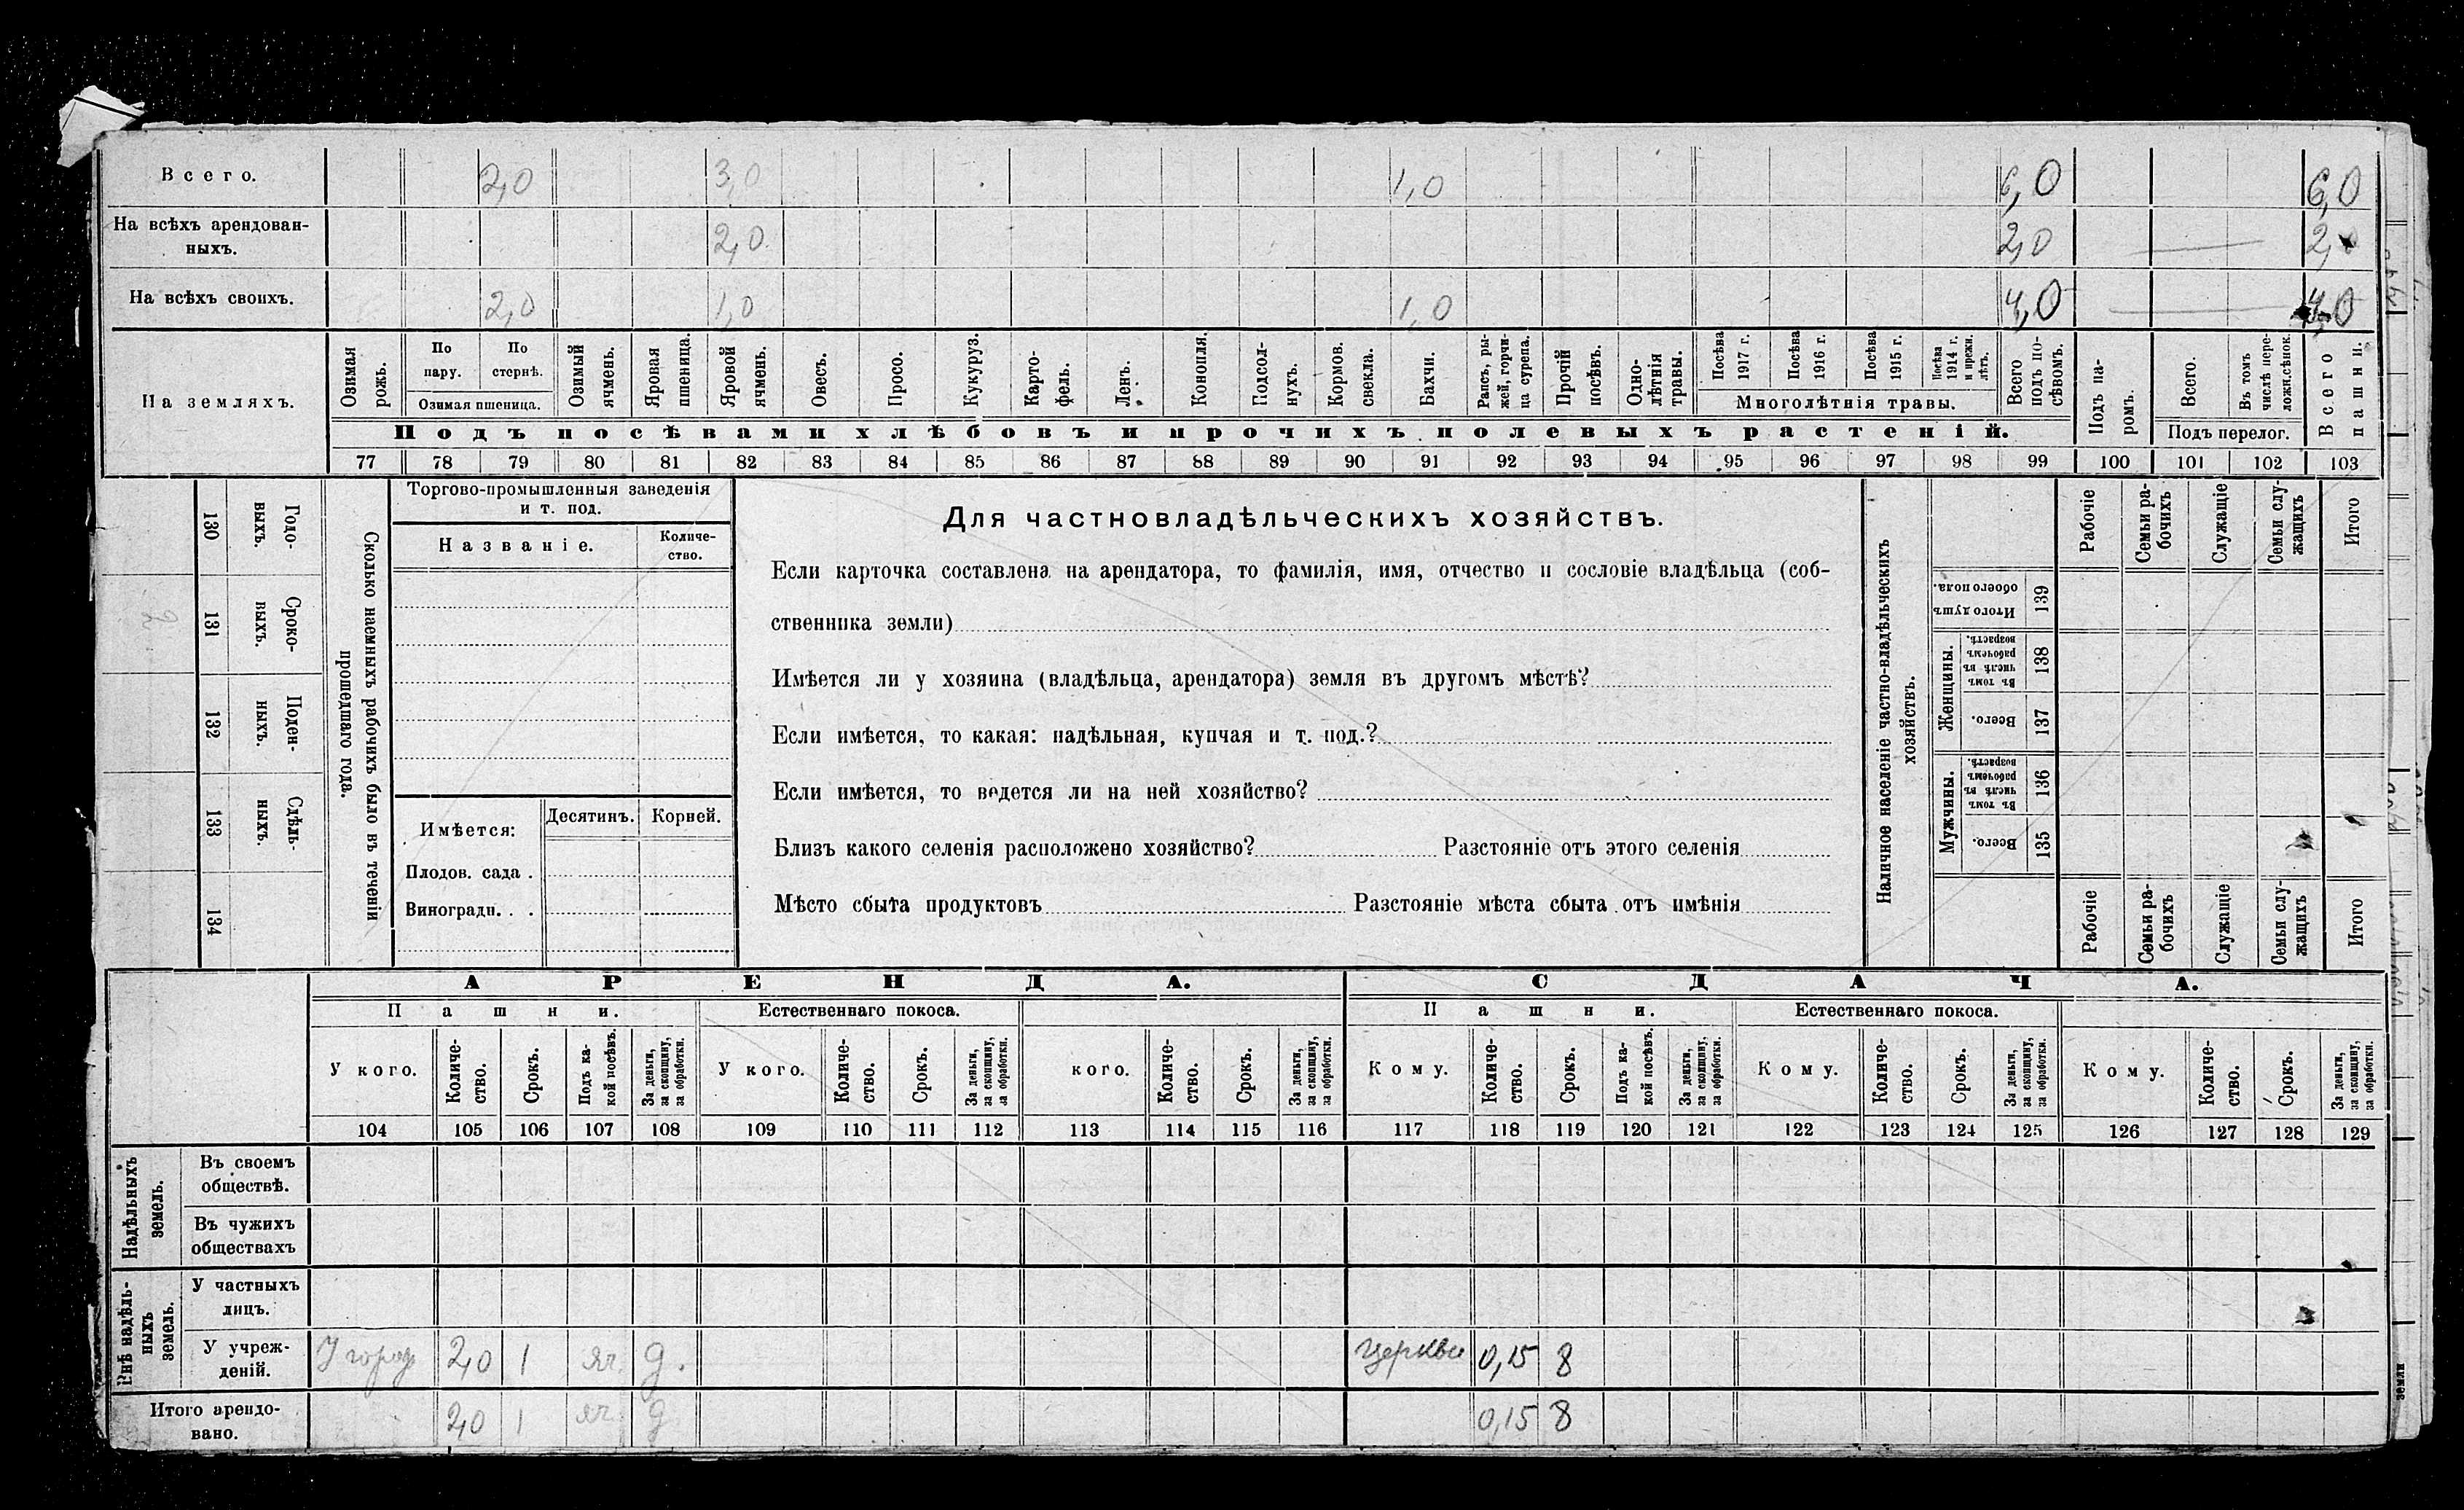 Всего. 2,0 3,0 1,0 6,0 6,0
На всѣхъ арендован-
ныхъ. 2,0 2,0 2,0
На всѣхъ своихъ. 2,0 1,0 1,0 4,0 4,0
На земляхъ.
Озимая рожь.
По пару.
По стернѣ.
Озимая пшеница.
Озимый ячмень.
Яровая пшеница.
Яровой ячмень.
Овесъ.
Просо.
Кукуруз.
Карто-
фель.
Ленъ.
Конопля.
Подсол-
нухъ.
Кормов. свекла.
Бахчи.
Рапсъ, ры-
жей, горчи-
ца сурепа.
Прочій посѣвъ.
Одно-
лѣтнія травы.
Посѣва 1917 г.
Посѣва 1916 г.
Посѣва 1915 г.
Посѣва 1914 г. и прежн. лѣтъ.
Многолѣтнія травы.
Всего подъ по-
сѣвомъ.
Подъ па-
ромъ.
Всего.
Въ томъ числѣ пере-
ложн. сѣнок.
Подъ перелог.
Всего пашни.
Подъ посѣвами хлѣбовъ и прочихъ полевыхъ растеній.
77 78 79 80 81 82 83 84 85 86 87 88 89 90 91 92 93 94 95 96 97 98 99 100 101 102 103
130 Годо-
выхъ.
131 Сроко-
выхъ.
132 Поден-
ныхъ.
133 Сдѣль-
ныхъ.
134
Сколько наемныхъ рабочихъ было въ теченіи
прошедшаго года.
Торгово-промышленныя заведенія
и т. под.
Названіе.
Количе-
ство.
Имѣется: Десятинъ. Корней.
Плодов. сада .
Виноградн. . .
Для частновладѣльческихъ хозяйствъ.
Если карточка составлена на арендатора, то фамилія, имя, отчество и сословіе владѣльца (соб-
ственника земли)
Имѣется ли у хозяина (владѣльца, арендатора) земля въ другомъ мѣстѣ?
Если имѣется, то какая: надѣльная, купчая и т. под.?
Если имѣется, то ведется ли на ней хозяйство?
Близъ какого селенія расположено хозяйство? Разстояніе отъ этого селенія
Мѣсто сбыта продуктовъ Разстояніе мѣста сбыта отъ имѣнія
Наличное населеніе частно-владѣльческихъ
хозяйствъ.
Рабочіе
Семьи ра-
бочихъ
Служащіе
Семьи слу-
жащихъ
Итого
Итого душъ обоего пола. 139
Женщины.
Въ томъ числѣ въ рабочемъ возрастѣ. 138
Всего. 137
Мужчины.
Въ томъ числѣ въ рабочемъ возрастѣ. 136
Всего. 135
Рабочіе
Семьи ра-
бочихъ
Служащіе
Семьи слу-
жащихъ
Итого
АРЕНДА. СДАЧА.
Пашни. Естественнаго покоса. Пашни. Естественнаго покоса.
У кого.
Количе-
ство.
Срокъ.
Подъ ка-
кой посѣвъ.
За деньги,
за скопщину,
за обработки.
У кого.
Количе-
ство.
Срокъ.
За деньги,
за скопщину,
за обработки.
кого.
Количе-
ство.
Срокъ.
За деньги,
за скопщину,
за обработки.
Кому.
Количе-
ство.
Срокъ.
Подъ ка-
кой посѣвъ.
За деньги,
за скопщину,
за обработки.
Кому.
Количе-
ство.
Срокъ.
За деньги,
за скопщину,
за обработки.
Кому.
Количе-
ство.
Срокъ.
За деньги,
за скопщину,
за обработки.
104 105 106 107 108 109 110 111 112 113 114 115 116 117 118 119 120 121 122 123 124 125 126 127 128 129
Надѣльныхъ
земель.
Въ своемъ
обществѣ.
Въ чужихъ
обществахъ
Внѣ надѣль-
ныхъ
земель.
У частныхъ
лицъ.
У учреж-
деній. У город 2,0 1 яч. д. 0,15 8
Итого арендо-
вано. 2,0 1 яч. д 0,15 8
земли